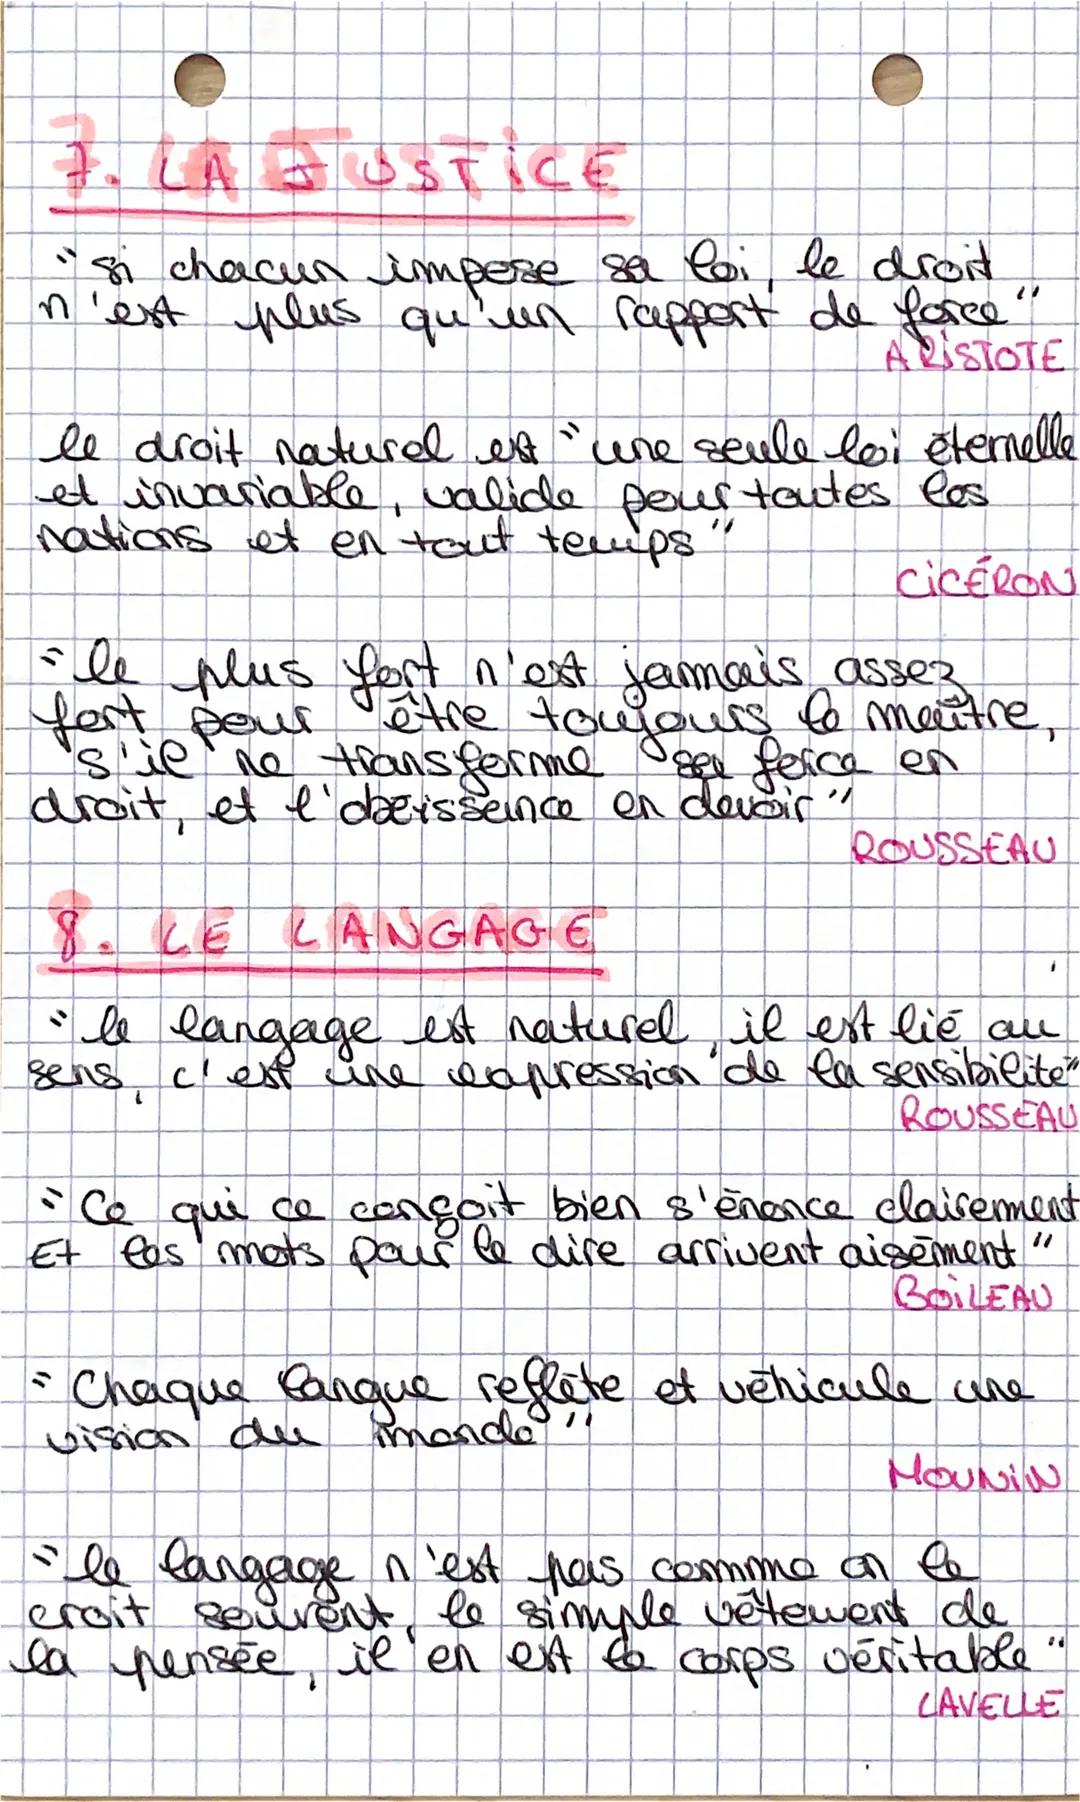 7. LA JUSTICE
"si chacun impose sa loi, le droit
n'est plus qu'un rapport de force"
ARISTOTE
le droit naturel est "une seule loi éternelle
et invariable, valide pour toutes les
nations et en tout temps"
CICÉRON
"le plus fort n'est jamais assez
fort pour être toujours le maître,
s'il ne transforme sa force en
droit, et l'obéissance en devoir"
ROUSSEAU
8. LE LANGAGE
"le langage est naturel, il est lié au
sens, c'est une expression de la sensibilité"
ROUSSEAU
"Ce qui ce conçoit bien s'énonce clairement
Et les mots pour le dire arrivent aisément"
BOILEAU
"Chaque langue reflète et véhicule une
vision du monde"
MOUNIN
"le langage n'est pas comme on le
croit souvent, le simple vêtement de
la pensée, il en est le corps véritable"
LAVELLE